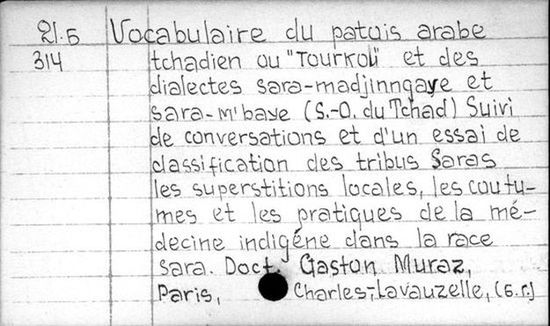 21.5 Vocabulaire du patois arabe
314 tchadien ou "Tourkou" et des
dialectes sara-madjinngaye et
sara-m'baye (S.-O. du Tchad) Suivi
de conversations et d'un essai de
classification des tribus Saras
les superstitions locales, les coutu-
mes et les pratiques de la mé-
decine indigéne dans la race
sara. Doct. Gaston Muraz,
Paris, Charles-Lavauzelle, (s.f.)